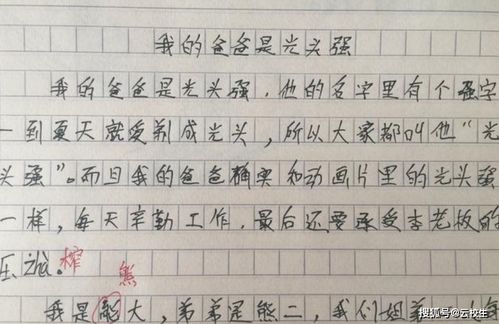 我的爸爸是光头强
我的爸爸是光头强，他的名字里有个强字
一到夏天就爱剃成光头，所以大家都叫他“光
头强”。而且我的爸爸确实和动画片里的光头强
一样，每天辛勤工作，最后还要承受李老板的
压zhà。榨
熊
我是 大，弟弟是熊二，我们姐弟
搜狐号@云校生